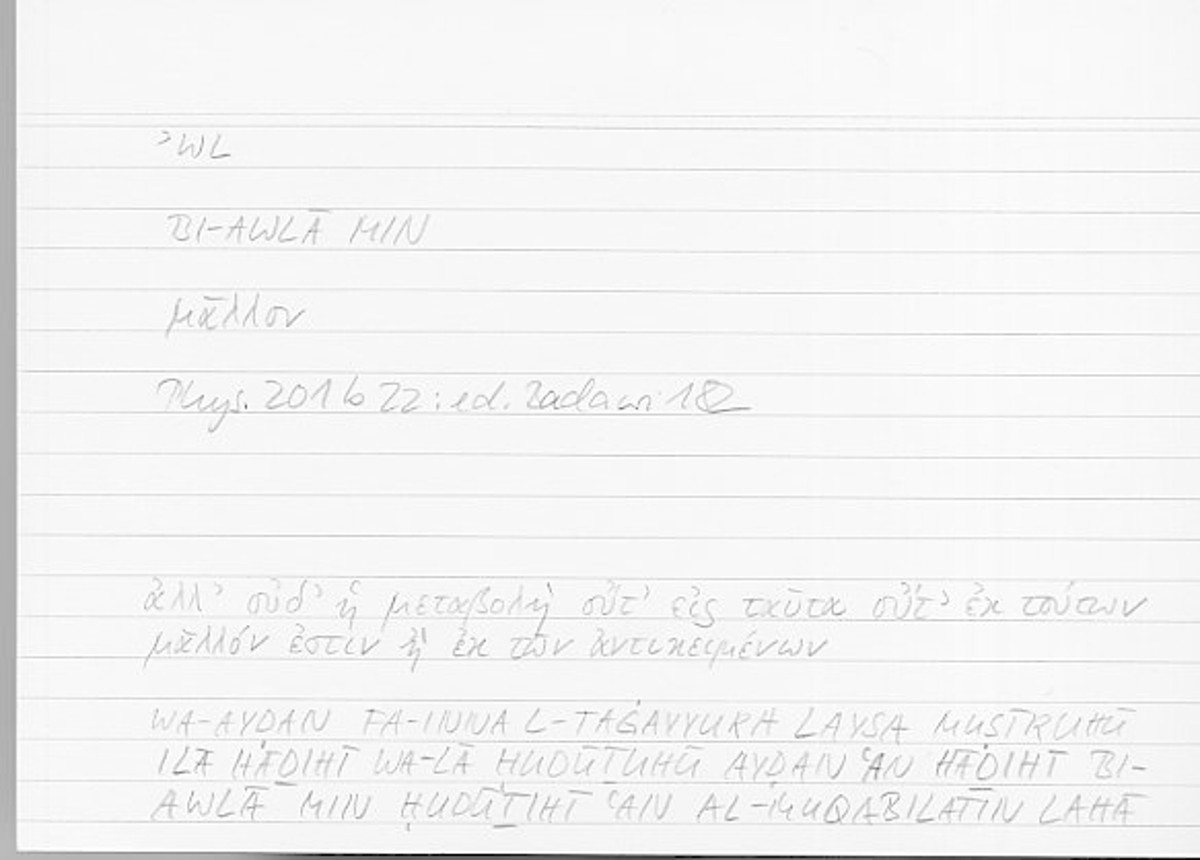 ʾWL
BI-AWLĀ MIN
μᾶλλον
Phys. 201b22: ed. Badawi 182
ἀλλ' οὐδ' ἡ μεταβολὴ οὔτ' εἰς ταῦτα οὔτ' ἐκ τούτων
μᾶλλόν ἐστιν ἢ ἐκ τῶν ἀντικειμένων
WA-AYḌAN FA-INNA L-TAĠAYYURA LAYSA
ILĀ HĀḎIHĪ WA-LĀ ḤUDŪṮUHŪ AYḌAN ʿAN HĀḎIHĪ BI-
AWLĀ MIN ḤUDŪṮIHĪ ʿAN AL-MUQĀBILATĪN LAHĀ